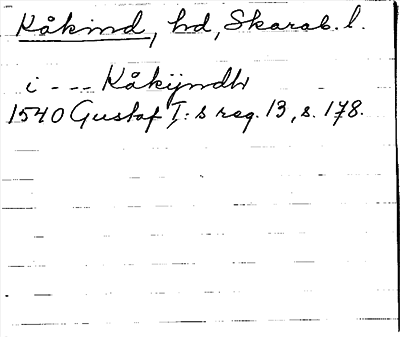 Kåkind, hd, Skarab. l.
i - - - Kåkijndh
1540 Gustaf I:s reg. 13, s. 178.